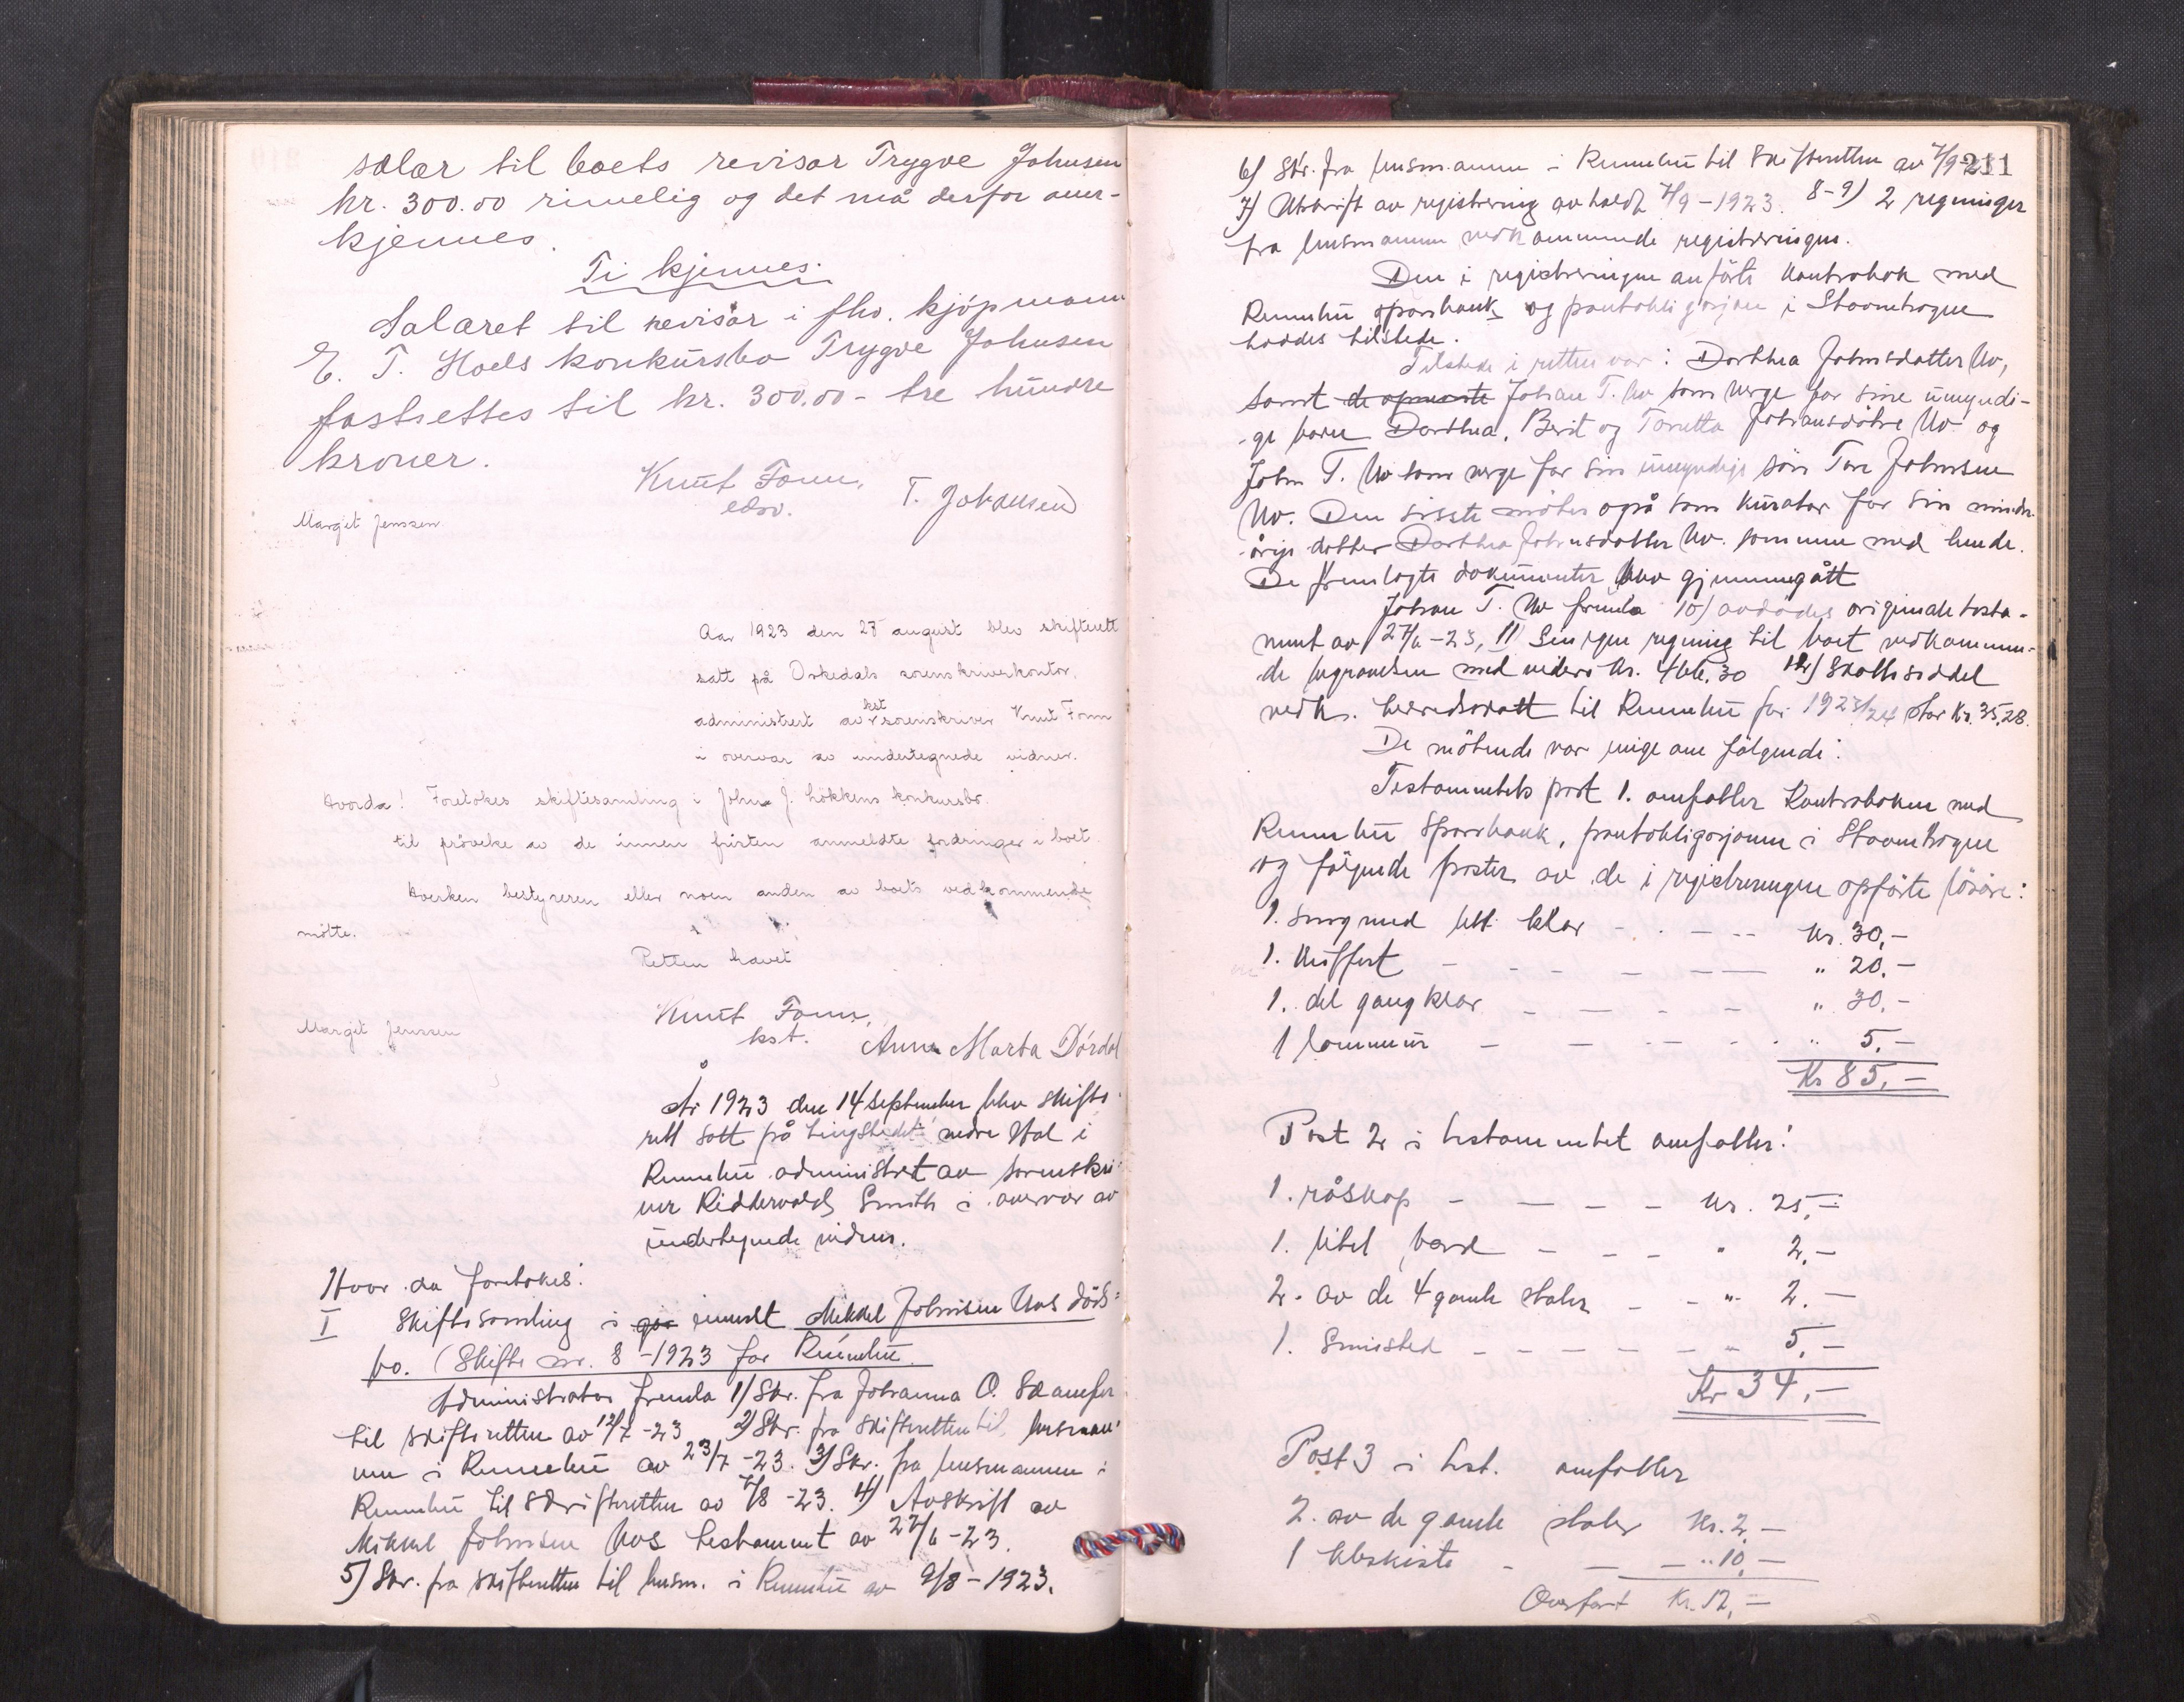 salær til boets revisor Trygve Johnsen
kr. 300.00 rimelig og det må derfor aner-
kjennes.
Ti kjennes:
Salæret til revisor i fhv. kjøpmann
E. T. Hoels konkursbo Trygve Johnsen
fastsettes til kr. 300.00 - tre hundre
kroner.
Knut Fonn,
edsv.
T. Johansen
Margit Jenssen
Aar 1923 den 27 august blev skifterett
satt på Orkedals sorenskriverkontor,
administrert av kst sorenskriver Knut Fonn
i overvær av undertegnede vidner.
Hvorda! Foretokes skiftesamling i John J. Løkkens konkursbo
til prøvelse av de innen fristen anmeldte fordringer i boet.
Hverken bestyreren eller noen anden av boets vedkommende
møtte.
Retten hævet
Knut Fonn,
kst.
Margit Jenssen
Anna Marta Dørdal
År 1923 den 14 september blev skifte-
rett satt på tingstedet nedre Hol i
Rennebu administrert av sorenskri-
ver Riddervold Smith i overvær av
undertegnede vidner.
Hvor da foretokes:
I Skiftesamling i enemelt Mikkel Johnsen Uvs døds-
bo. (Skifte nr. 8 - 1923 for Rennebu.
Administrator fremla 1) Skr. fra Johanna O. Skamfer
til skifteretten av 12/7 -23 2) Skr. fra skifteretten til lensman-
nen i Rennebu av 23/7 -23. 3) Skr. fra lensmannen i
Rennebu til skifteretten av 7/8 -23. 4) Avskrift av
Mikkel Johnsen Uvs testament av 27/6 -23.
5) Skr. fra skifteretten til lensm. i Rennebu av 9/8 - 1923.
211
6) Skr. fra lensmannen i Rennebu til Skifteretten av 7/9-23
7) Utskrift av registrering avholdt 4/9 - 1923. 8-9) 2 regninger
fra lensmannen vedkommende registreringen.
Den i registreringen anførte kontrabok med
Rennebu sparebank og pantobligasjon i Stavnekrogen
haddes tilstede.
Tilstede i retten var: Dorthea Johnsdatter Uv,
samt Johan T. Uv som verge for sine umyndi-
ge barn Dorthea, Berit og Toretta Johansdøtre Uv og
John T. Uv som verge for sin umyndige søn Tore Johnsen
Uv. Den sisste møter også som kurator for sin minder-
årige datter Dorthea Johnsdatter Uv. sammen med hende.
De fremlagte dokumenter blev gjennemgått
Johan T. Uv fremla 10) avdødes originale testa-
ment av 27/6 -23, 11) Sin egen regning til boet vedkommen-
de begravelsen med videre kr. 466.30 12) Skattseddel
vedk. herredsskatt til Rennebu for 1923/24 stor kr. 35,28.
De møtende var enige om følgende:
Testamentets post 1. omfatter kontraboken med
Rennebu Sparebank, pantobligasjonen i Stavnekrogen
og følgende poster av de i registreringen opførte løsøre:
1. seng med litt klær - - - - kr. 30,-
1. kuffert - - - - - " 20.-
1. del gangklær - - - - " 30.-
1 lommeur - - - - - " 5.-
Kr 85,-
Post 2 i testamentet omfatter:
1. råskap - - - - kr. 25,-
1. litet bord - - - " 2,-
2. av de 4 gamle stoler - - " 2.-
1. Smisted - - - - - - " 5,-
Kr 34,-
Post 3 i test. omfatter
2. av de gamle stoler kr. 2,-
1 klæskiste - - - " 10,-
Overført Kr. 12,-